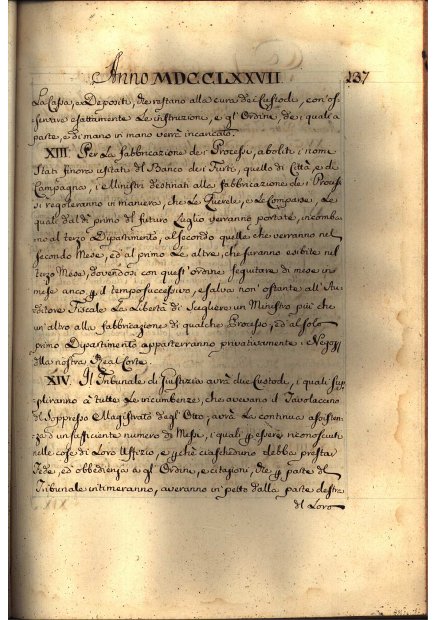 Anno MDCCLXXVII. 137
La Cassa, e Depositi, che restano alla cura dei Custodi, con os-
servare esattamente le istruzioni, e gl'Ordini, dei quali a
parte, e di mano in mano verrà incaricato.
XIII. Per la fabbricazione dei Processi, aboliti i nomi
stati finora usitati di Banco dei Furti, quello di Città, e di
Campagna, i Ministri destinati alla fabbricazione dei Processi
si regoleranno in maniera, che le Querele, e le Comparse, le
quali dal dì primo del futuro Luglio verranno portate, incomba-
no al terzo Dipartimento, al secondo quelle che verranno nel
secondo Mese, ed al primo le altre, che saranno esibite nel
terzo Mese, dovendosi con quest'ordine seguitare di mese in
mese anco p il tempo successivo, e salva non ostante all'Au-
ditore Fiscale la libertà di scegliere un Ministro più che
un'altro alla fabbricazione di qualche Processo, ed al solo
primo Dipartimento apparterranno privativamente i Negozj
della nostra Real Corte.
XIV. Il Tribunale di Giustizia avrà due Custodi, i quali sup-
pliranno a tutte le incumbenze, che avevano il Tavolaccino
del soppresso Magistrato degl'Otto, avrà la continua assisten-
za d'un sufficiente numero di Messi, i quali p essere riconosciuti
nelle cose di loro Ufizio, e pchè ciascheduno debba prestar
fede, ed obbedienza a gl'Ordini, e citazioni, che p parte del
Tribunale intimeranno, averanno in petto dalla parte destra
del loro